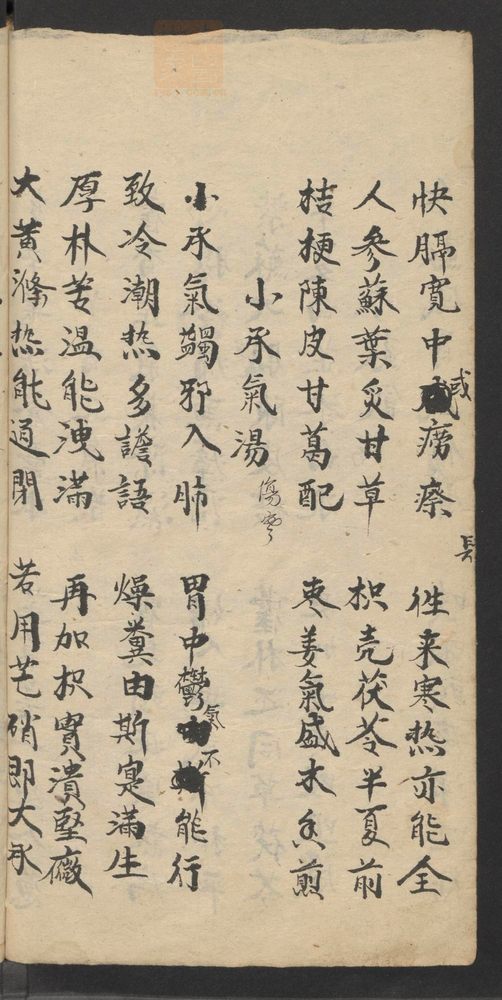 快膈寬中或癆瘵 往来寒热亦能全
人參蘇葉炙甘草 枳壳茯苓半夏前
桔梗陳皮甘葛配 枣姜氣盛木香煎
小承氣湯 傷寒
小承氣蠲邪入肺 胃中鬱氣不能行
致冷潮热多譫語 燥糞由斯寔滿生
厚朴苦温能洩滿 再加枳實潰堅廠
大黄滌热能通閉 若用芒硝即大承